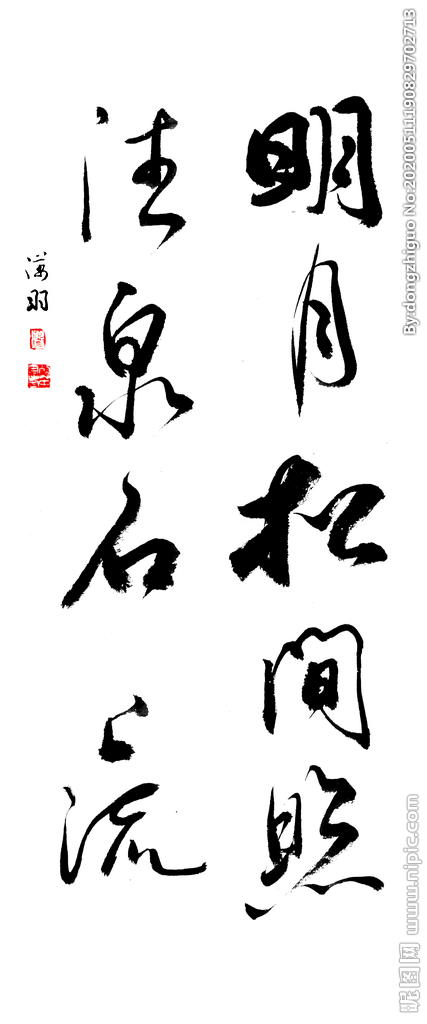 明月松间照
清泉石上流
漢羽
By:dongzhiguo No:20200511190829702713
昵图网 www.nipic.com